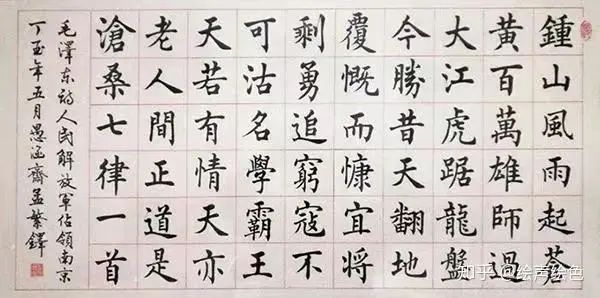 鍾山風雨起蒼
黃百萬雄師過
大江虎踞龍盤
今勝昔天翻地
覆慨而慷宜將
剩勇追窮寇不
可沽名學霸王
天若有情天亦
老人間正道是
滄桑七律一首
毛澤東詩人民解放軍佔領南京
丁酉年五月愚涵齋孟繁鐸
知乎 @绘声绘色